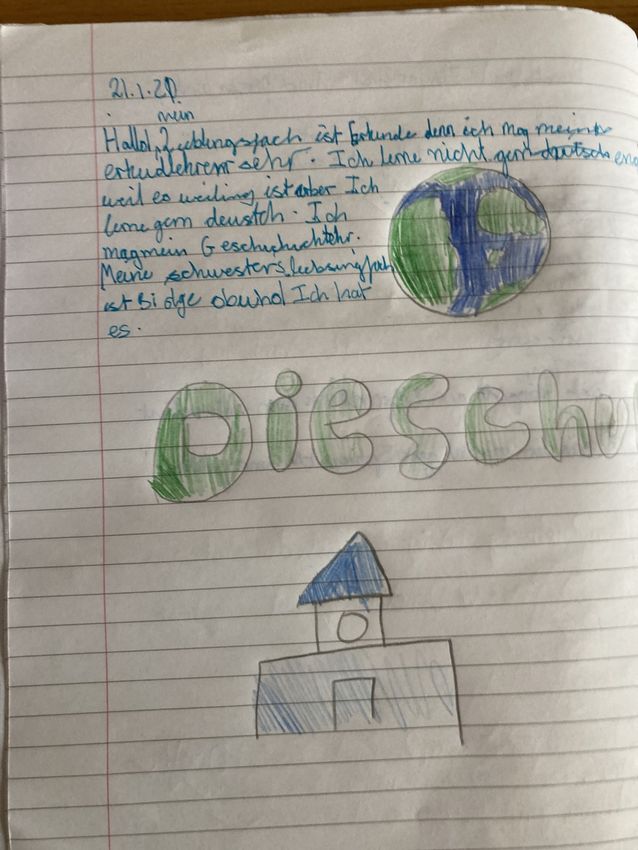 21.1.20.
mein
Hallo! Lieblingsfach ist Erkunde denn ich mag mein
erkudlehrerr sehr. Ich lerne nicht gern
weil es weiling ist aber Ich
lerne gern deustch. Ich
magmein Geschuhuchtehr.
Meine schwesters leibsingfach
ist Bi olge obwhol Ich hat
es.
Die Schu